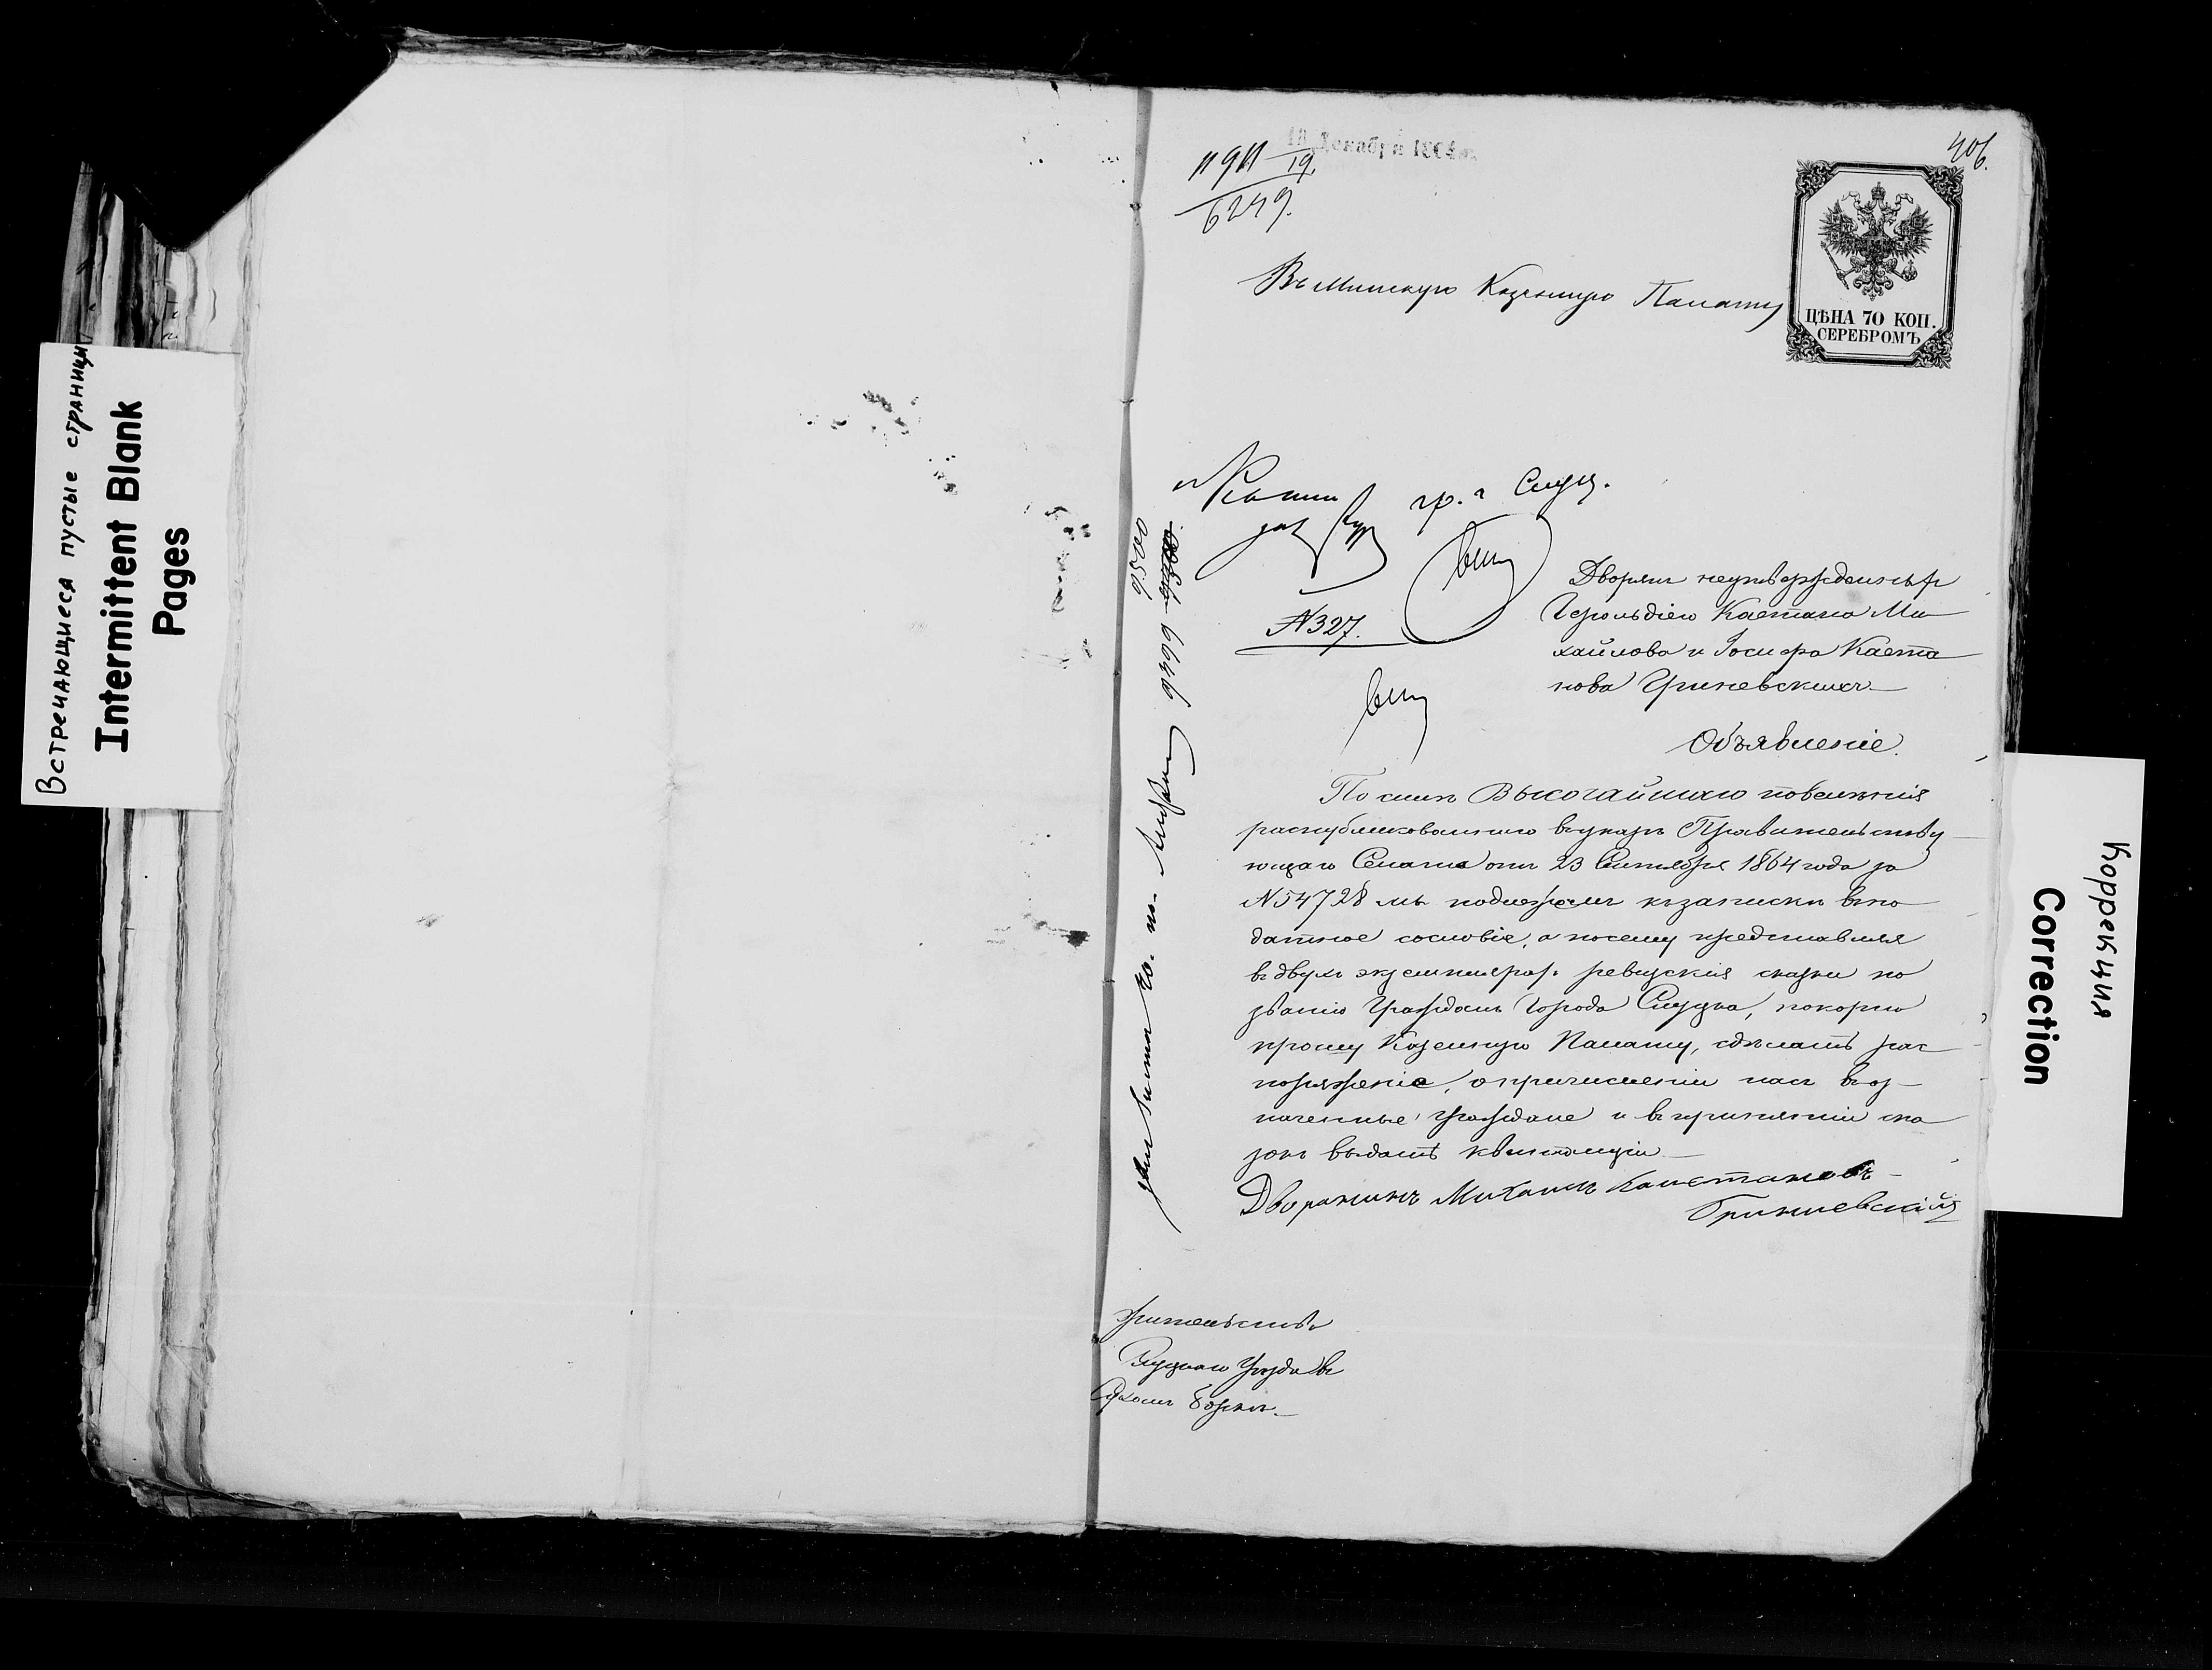 Встречающиеся пустые страницы
Intermittent Blank
Pages
406.
Декабря
19
6249.
ЦѢНА 70 КОП.
СЕРЕБРОМЪ
Въ Минскую Казенную Палату
гр. г Слуц.
№327.
9399 9500
Дворянъ неутвержденныхъ
Герольдіею Каетана Ми
хайлова и Іосифа Каета
нова Гриневскихъ
Объявленіе.
По силѣ Высочайшаго повелѣнія
распубликованнаго въ указѣ Правительству
ющаго Сената отъ 23 Сентября 1864 года за
№54728 мы подлежимъ къ запискѣ въ по
датное сословіе, а посему представляя
въ двухъ экземплярах ревизскія сказки по
званію Гражданъ Города Слуцка, покорно
прошу Казенную Палату, сдѣлать рас
поряженіе, о причисленіи насъ въ оз
наченные граждане и въ принятіи ска
зокъ выдать квитанцію
Дворянинъ Михаилъ Каэтановъ
Гриневскій
Жительство
Слуцкаго Уѣзда въ